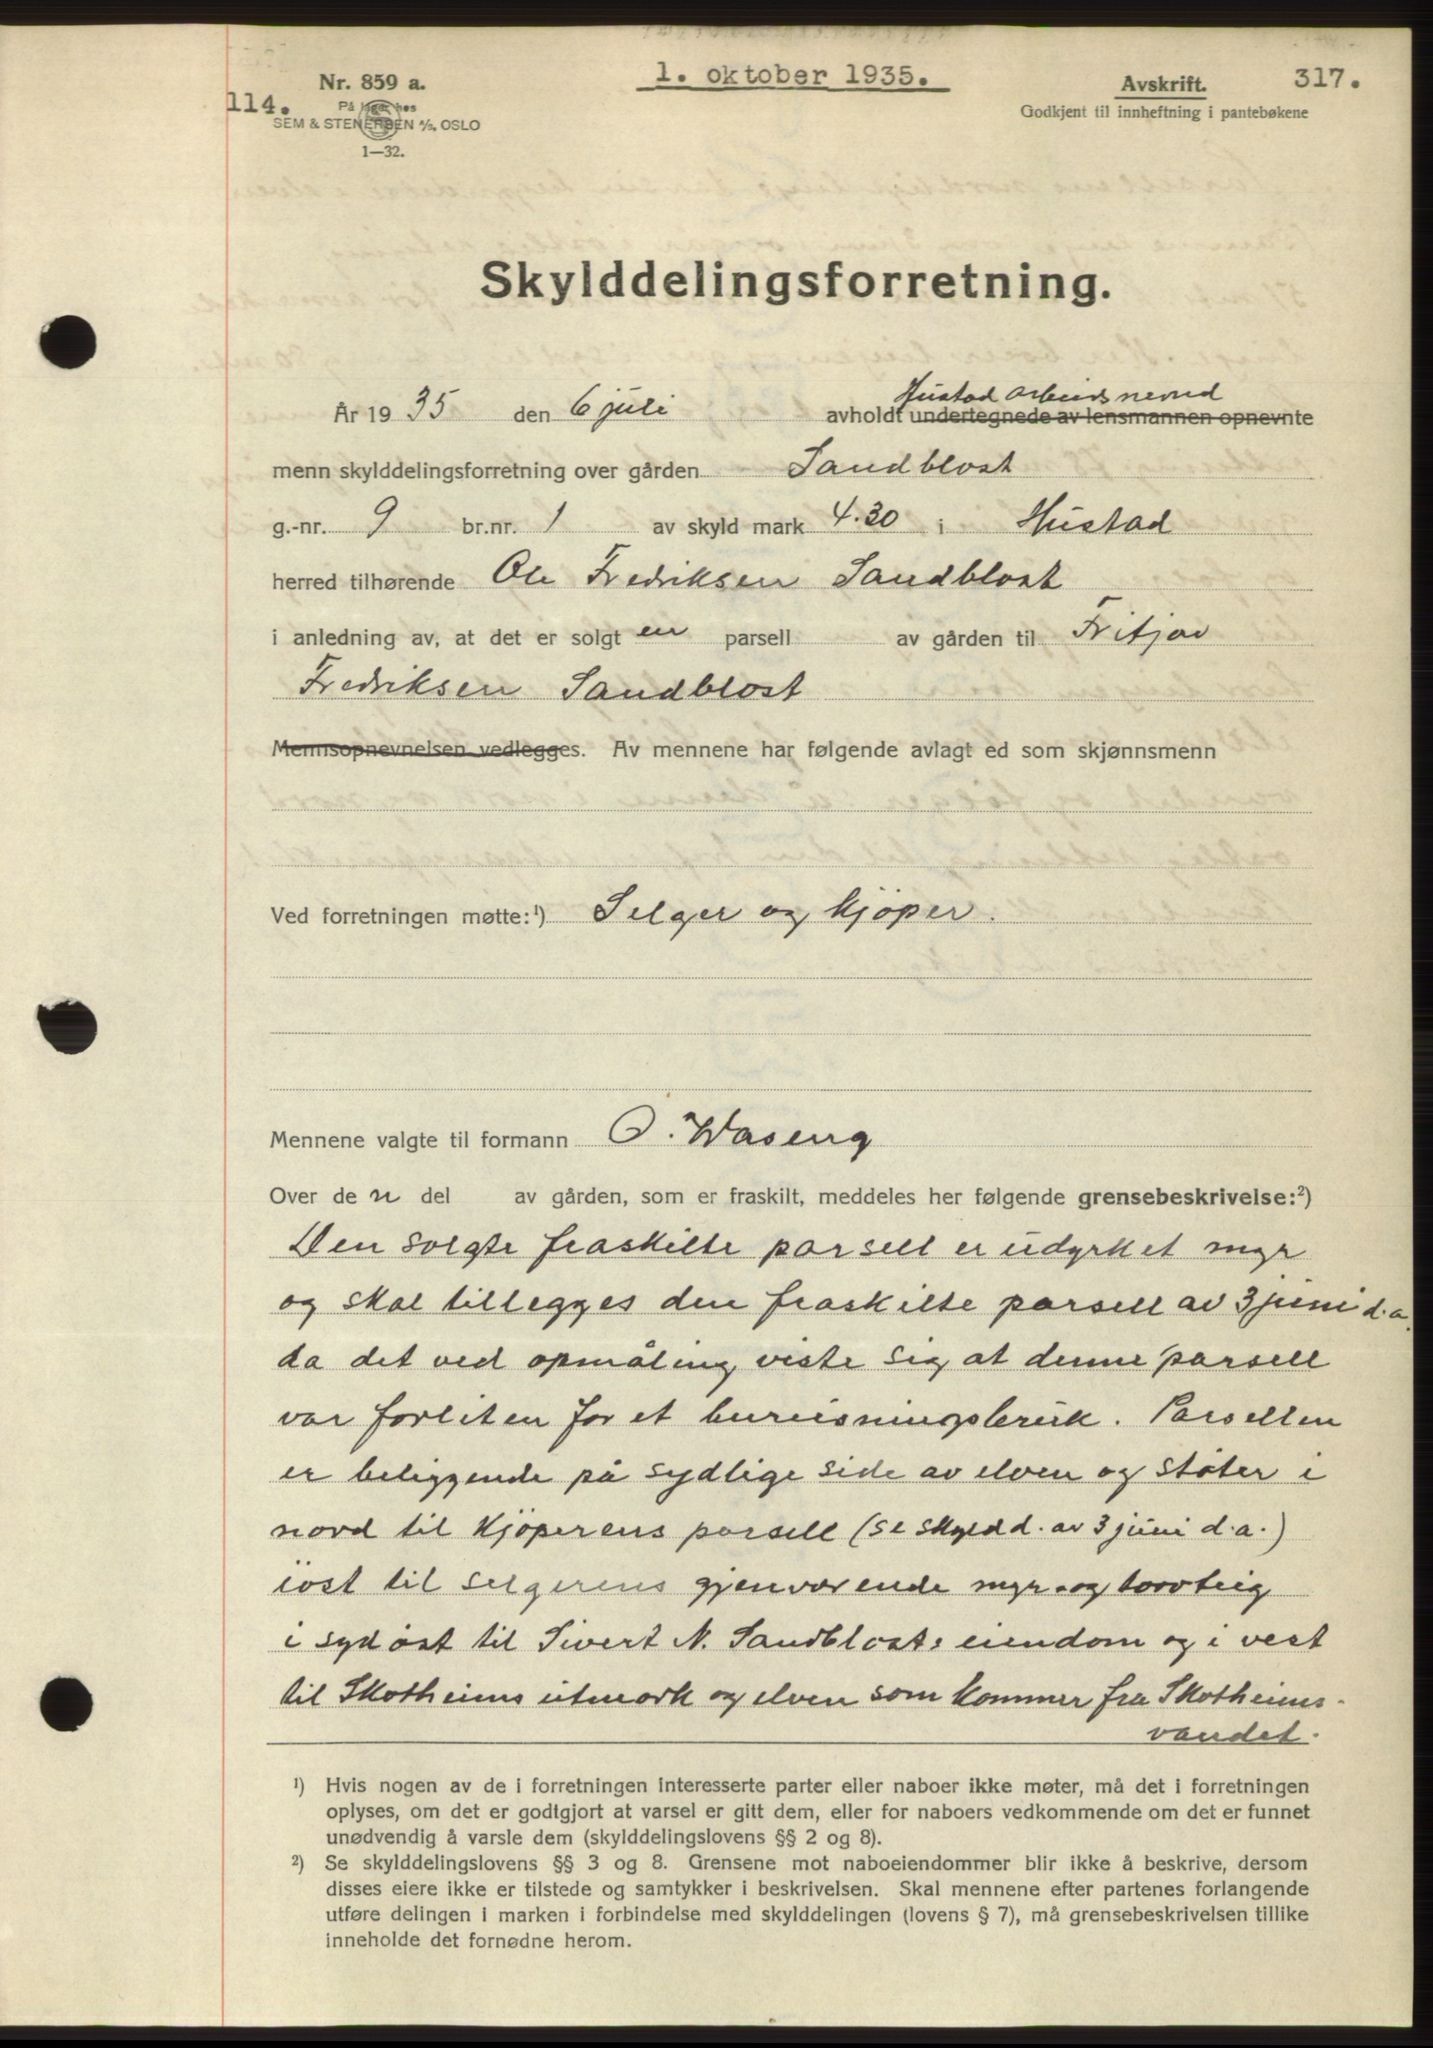 114.
Nr. 859 a.
På lager hos
SEM & STENERSEN A/S, OSLO
1—32.
1. oktober 1935.
Avskrift.
317.
Godkjent til innheftning i pantebøkene
Skylddelingsforretning.
Hustad arbeidsnemnd
År 1935 den 6 juli avholdt undertegnede av lensmannen opnevnte
menn skylddelingsforretning over gården Sandblost
g.-nr. 9 br.nr. 1 av skyld mark 4.30 i Hustad
herred tilhørende Ole Fredriksen Sandblost
i anledning av, at det er solgt en parsell av gården til Fritjov
Fredriksen Sandblost
Mennsopnevnelsen vedlegges. Av mennene har følgende avlagt ed som skjønnsmenn
Ved forretningen møtte:¹) Selger og kjøper.
Mennene valgte til formann O. Waseng
Over den del av gården, som er fraskilt, meddeles her følgende grensebeskrivelse:²)
Den solgte fraskilte parsell er udyrket myr
og skal tillegges den fraskilte parsell av 3 juni d.a.
da det ved opmåling viste sig at denne parsell
var forliten for et bureisningsbruk. Parsellen
er beliggende på sydlige side av elven og støter i
nord til kjøperens parsell (se skyldd. av 3 juni d.a.)
i øst til selgerens gjenværende myr- og torvteig
i syd øst til Sivert N. Sandblosts eiendom og i vest
til Skotheims utmark og elven som kommer fra Skotheims-
vandet.
¹) Hvis nogen av de i forretningen interesserte parter eller naboer ikke møter, må det i forretningen
oplyses, om det er godtgjort at varsel er gitt dem, eller for naboers vedkommende om det er funnet
unødvendig å varsle dem (skylddelingslovens §§ 2 og 8).
²) Se skylddelingslovens §§ 3 og 8. Grensene mot naboeiendommer blir ikke å beskrive, dersom
disses eiere ikke er tilstede og samtykker i beskrivelsen. Skal mennene efter partenes forlangende
utføre delingen i marken i forbindelse med skylddelingen (lovens § 7), må grensebeskrivelsen tillike
inneholde det fornødne herom.